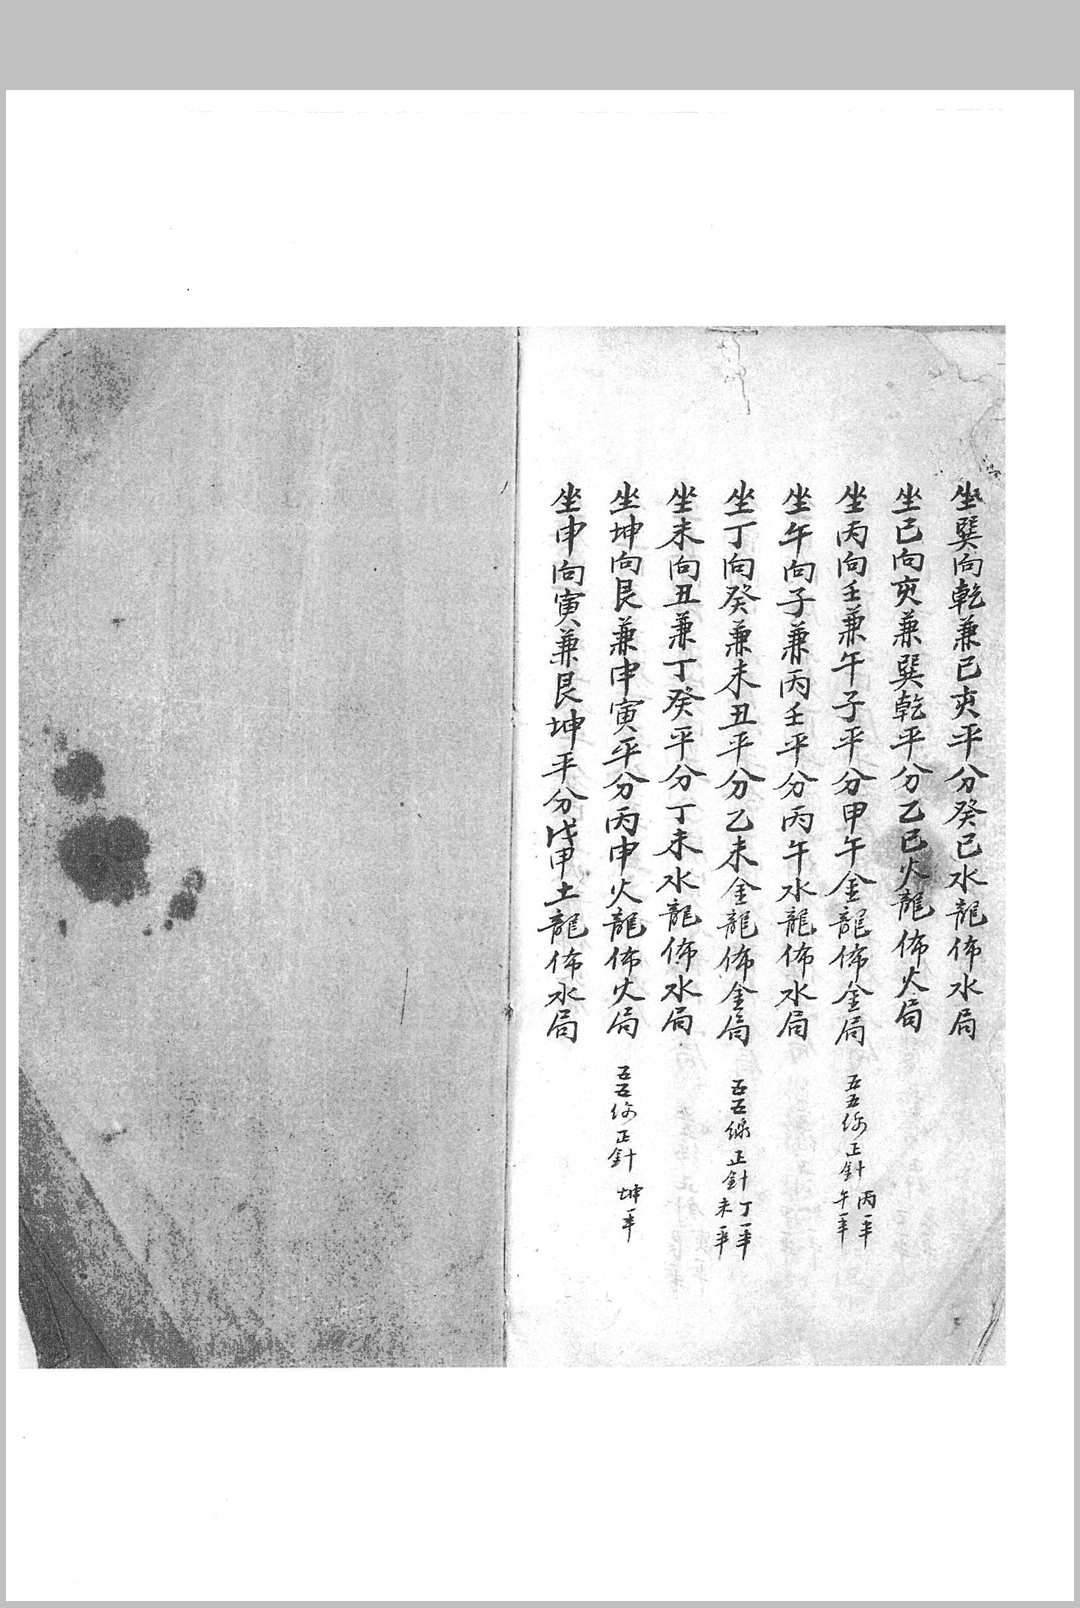 坐巽向乾兼巳亥平分癸巳水龍佈水局
坐巳向亥兼巽乾平分乙巳火龍佈火局
坐丙向壬兼午子平分甲午金龍佈金局
五五線正針
丙一半
午一半
坐午向子兼丙壬平分丙午水龍佈水局
坐丁向癸兼未丑平分乙未金龍佈金局
五五線正針
丁一半
未一半
坐未向丑兼丁癸平分丁未水龍佈水局
坐坤向艮兼申寅平分丙申火龍佈火局
五五線正針
坤一半
坐申向寅兼艮坤平分戊申土龍佈水局